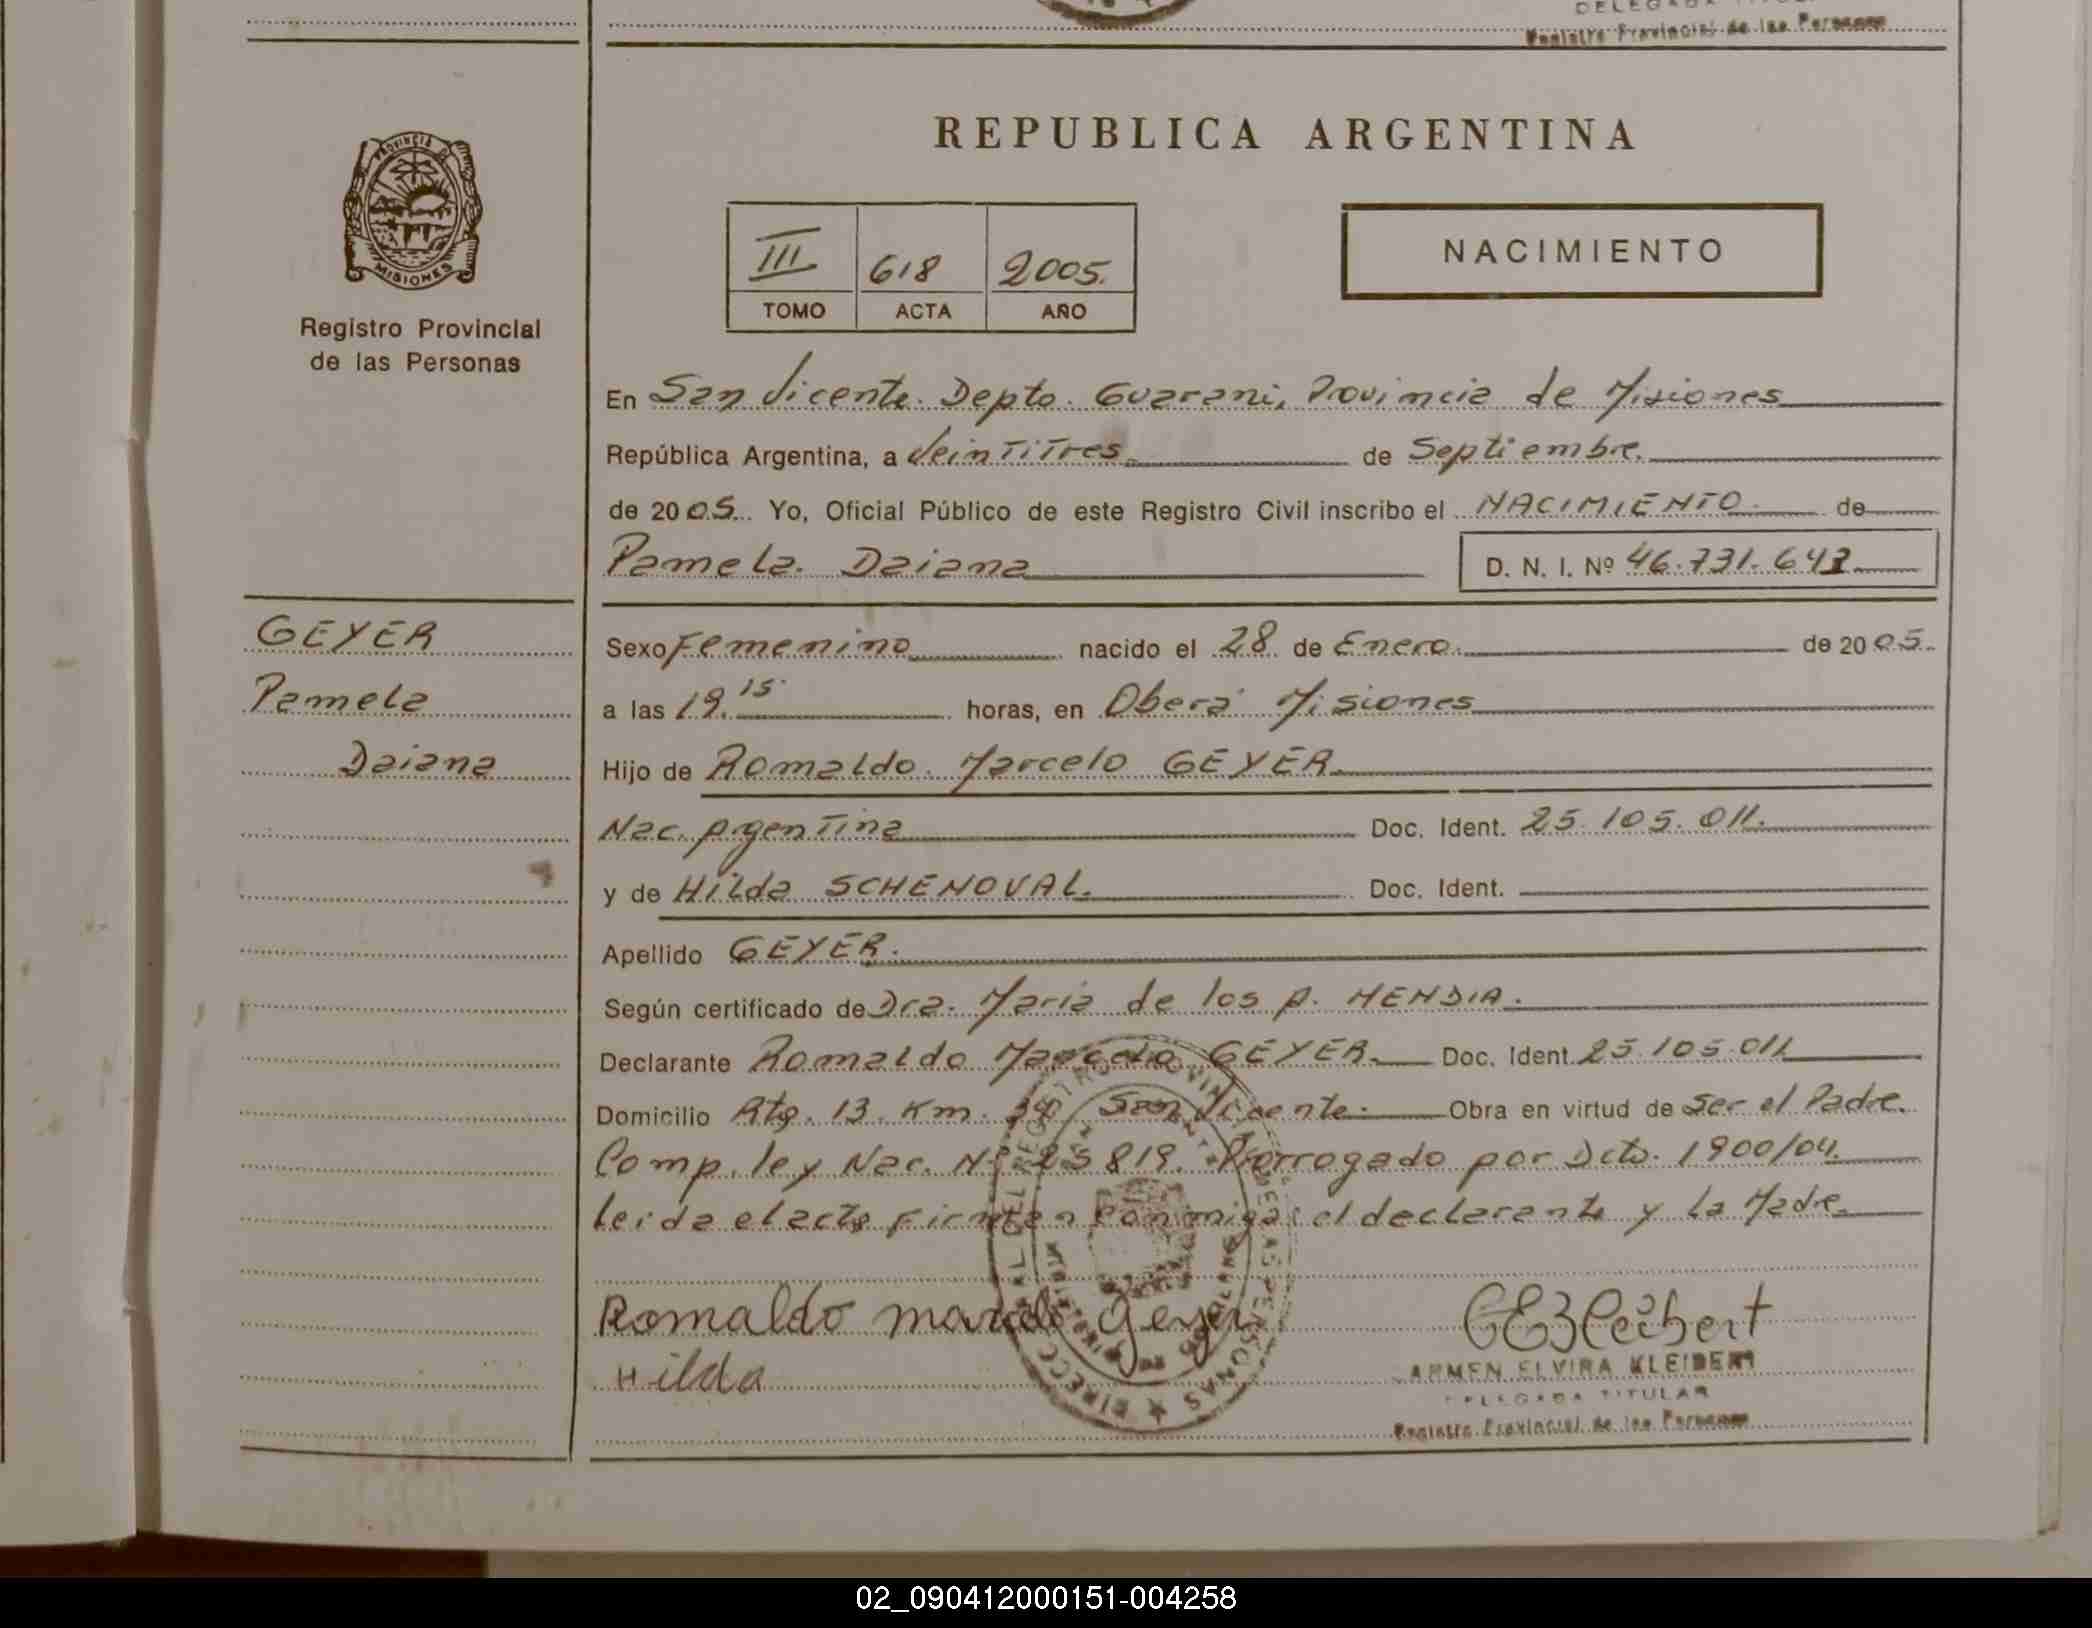 DELEGADA TITULAR
Registro Provincial de las Personas
PROVINCIA DE
MISIONES
Registro Provincial
de las Personas
REPUBLICA ARGENTINA
III 618 2005.
TOMO ACTA AÑO
NACIMIENTO
En San Vicente. Depto. Guarani, Provincia de Misiones
República Argentina, a Veintitres de Septiembre.
de 2005. Yo, Oficial Público de este Registro Civil inscribo el NACIMIENTO. de
Pamela. Daiana D. N. I. Nº 46.731.643
GEYER
Pamela
Daiana
Sexo Femenino nacido el 28 de Enero. de 2005.
a las 19.15. horas, en Oberá Misiones
Hijo de Romaldo. Marcelo GEYER.
Nac. Argentina Doc. Ident. 25.105.011.
y de Hilda SCHENOVAL. Doc. Ident.
Apellido GEYER.
Según certificado de Dra. Maria de los A. MENDIA.
Declarante Romaldo Marcelo GEYER. Doc. Ident. 25.105.011
Domicilio Rta. 13. Km. San Vicente. Obra en virtud de Ser el Padre.
Comp. ley Nac. Nº 25819. Prorrogado por Dcto. 1900/04.
leida el acta firman conmigo: el declarante y la Madre.
Romaldo marcelo geyer
Hilda
CEKleibert
ARMEN ELVIRA KLEIBERT
DELEGADA TITULAR
Registro Provincial de las Personas
02_090412000151-004258